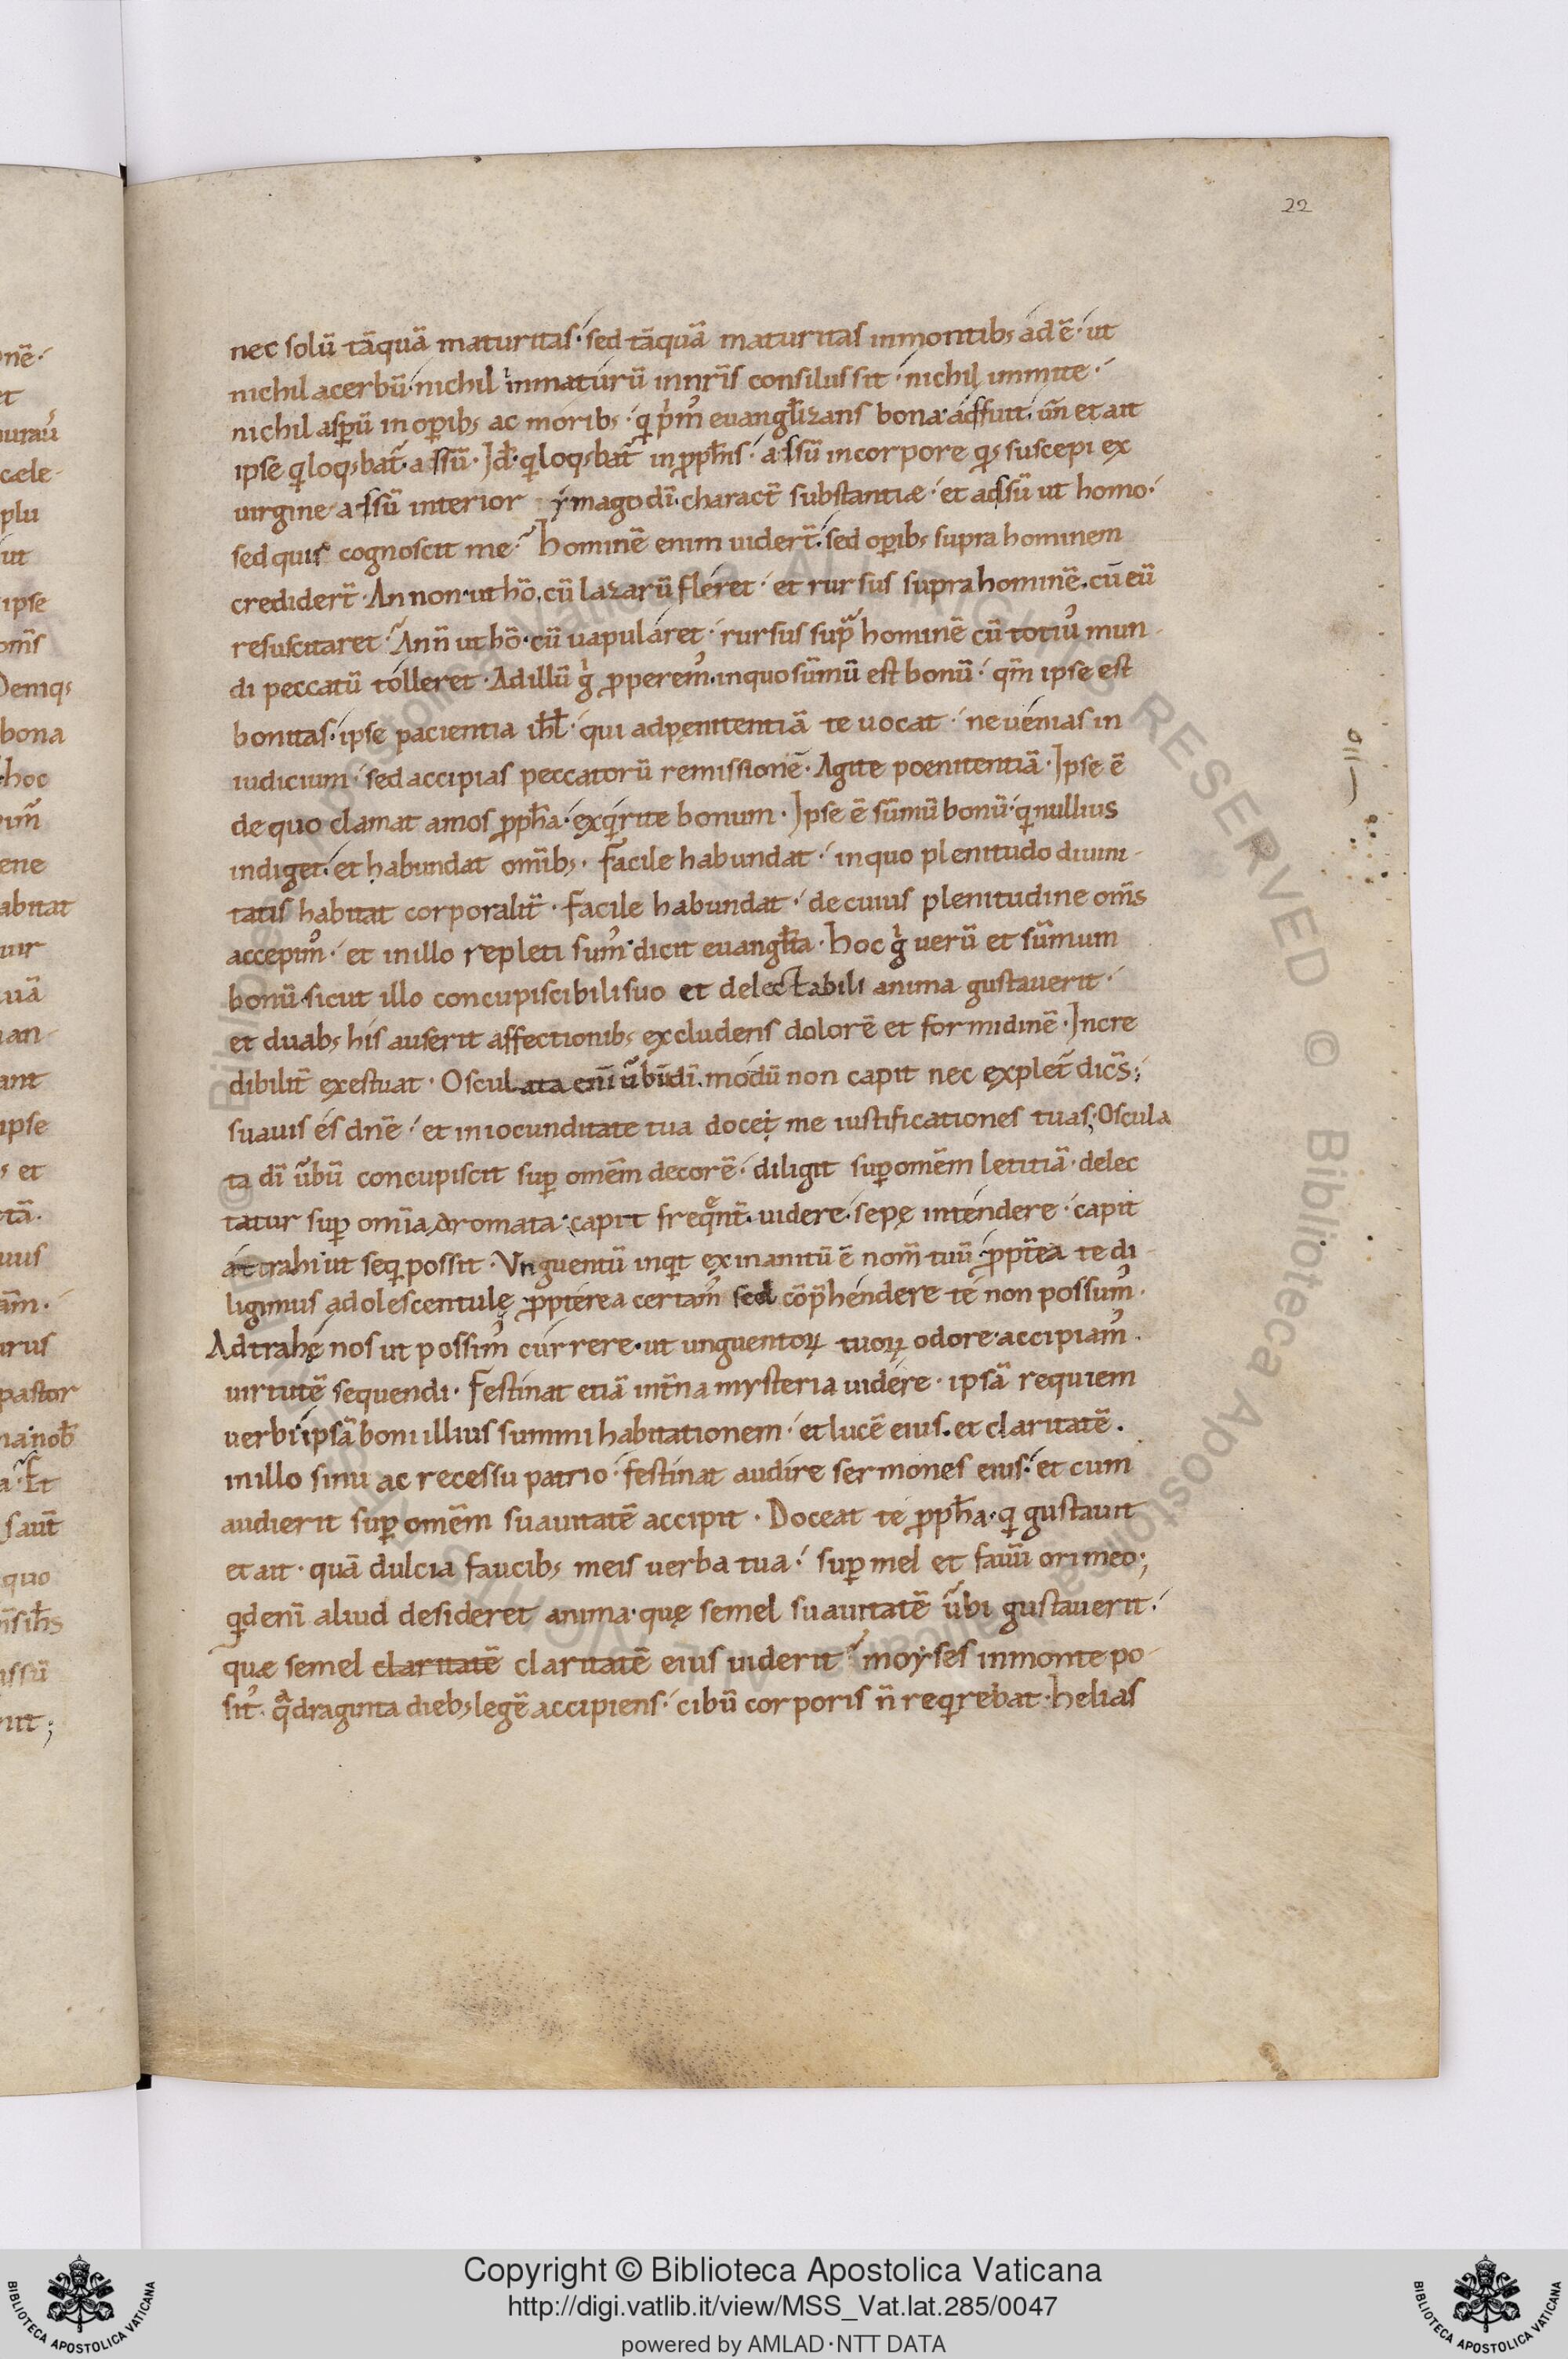 22
nec solū tāquā maturitas· sed tāquā maturitas in montib; ad ē· ut
nichil acerbū· nichil inmaturū in nr̄is consiliis sit· nichil immite·
nichil asp̄ū in op̄ib; ac morib;· q̇ prim᷒ euangl̄izans bona· affuit· uñ et ait
ipse qui loq;bat̄· assū· Id ē· qui loq;bat̄ in proph̄is· assū in corpore q; suscepi ex
uirgine· assū interior ymago dī· charact̄ substantiæ· et adsū ut homo·
sed quis cognoscit me· hominē enim uidert̄· sed op̄ib; supra hominem
credidert̄· An non· ut hō· cū lazarū fleret· et rursus supra hominē· cū eū
resuscitaret· An ñ ut hō· cū uapularet· rursus supͣ hominē cū toti᷒ mun-
di peccatū tolleret· Ad illū gͥ properem᷒· in quo sūmū est bonū· qm̄ ipse est
bonitas· ipse pacientia ihl̄· qui ad pęnitentiā te uocat· ne uenias in
iudicium· sed accipias peccatorū remissionē· Agite poenitentiā· Ipse ē
de quo clamat amos proph̄a· exqͥrite bonum· Ipse ē sūmū bonū· qͥ nullius
indiget· et habundat om̄ib;· Facile habundat· in quo plenitudo diuini-
tatis habitat corporalit̄· Facile habundat· de cuius plenitudine om̄s
accepim᷒· et in illo repleti sum᷒ dicit euangl̄ista· Hoc gͥ uerū et sūmum
bonū· sicut illo concupiscibili suo et delectabili anima gustauerit·
et duab; his auserit affectionib; excludens dolorē et formidinē· Incre
dibilit̄ exestuat· Osculata enī ūbū dī· modū non capit nec explet̄ dic̄s;
suauis es dn̄e· et in iocunditate tua docet me iustificationes tuas; Oscula
ta dī ūbū concupiscit sup̄ omēm decorē· diligit sup̄ omēm letitiā· delec
tatur sup̄ om̄ia aromata· capit freqͤnt̄ uidere· sepę intendere· capit
attrahi ut seqͥ possit· Vnguentū inqͥt exinanitū ē nom̄ tuū· propt̄ea te di-
ligimus adolescentulę propterea certam᷒ sed cōp̄hendere te non possum᷒·
Adtrahe nos ut possim᷒ currere· ut unguentoꝝ tuoꝝ odore accipiam᷒·
uirtutē sequendi· Festinat etiā int̄na mysteria uidere· ipsā requiem
uerbi· ipsā boni illius summi habitationem· et lucē eius· et claritatē·
in illo sinu ac recessu patrio· festinat audire sermones eius· et cum
audierit sup̄ omēm suauitatē accipit· Doceat te proph̄a· qͥ gustauit
et ait· quā dulcia faucib; meis uerba tua· sup̄ mel et fauū ori meo;
qͥd enī aliud desideret anima· quę semel suauitatē ūbi gustauerit·
quæ semel claritatē claritatē eius uiderit· moyses in monte po-
sit᷒· qͣdraginta dieb; legē accipiens· cibū corporis ñ reqͥrebat· helias
Copyright © Biblioteca Apostolica Vaticana
http://digi.vatlib.it/view/MSS_Vat.lat.285/0047
powered by AMLAD·NTT DATA